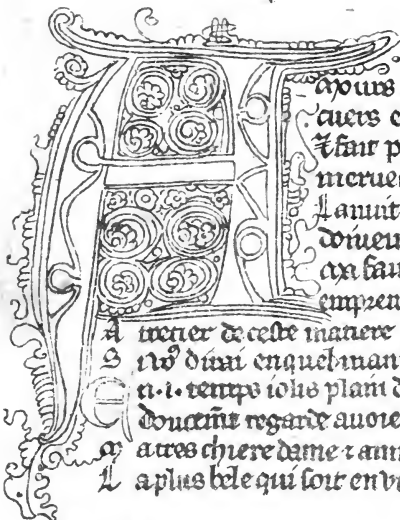 A
mours
cuers e
⁊ fait p
merue
La nuit
doiuen
ma fau
empren
A traitier de ceste matiere
S i vo⁹ dirai en quel man
E n .i. temps iolis plain d
doucem̄t regarde auoie
M a tres chiere dame ⁊ am
L a plus bele qui soit en vi